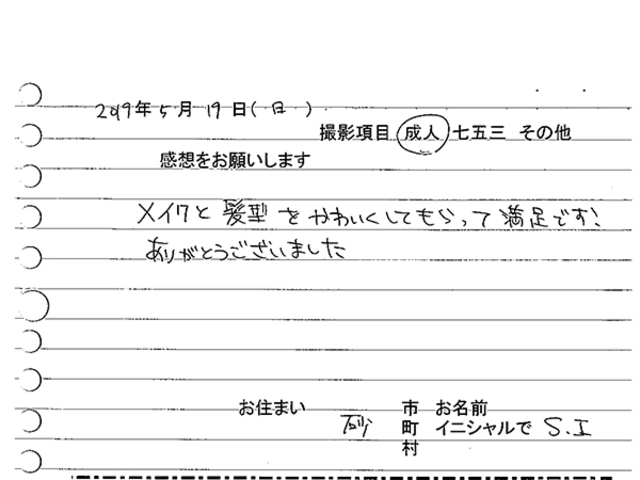 2019年5月19日(日)
撮影項目 成人 七五三 その他
感想をお願いします
メイクと髪型をかわいくしてもらって満足です!
ありがとうございました
お住まい 砂 市 お名前
町 イニシャルで S.I
村